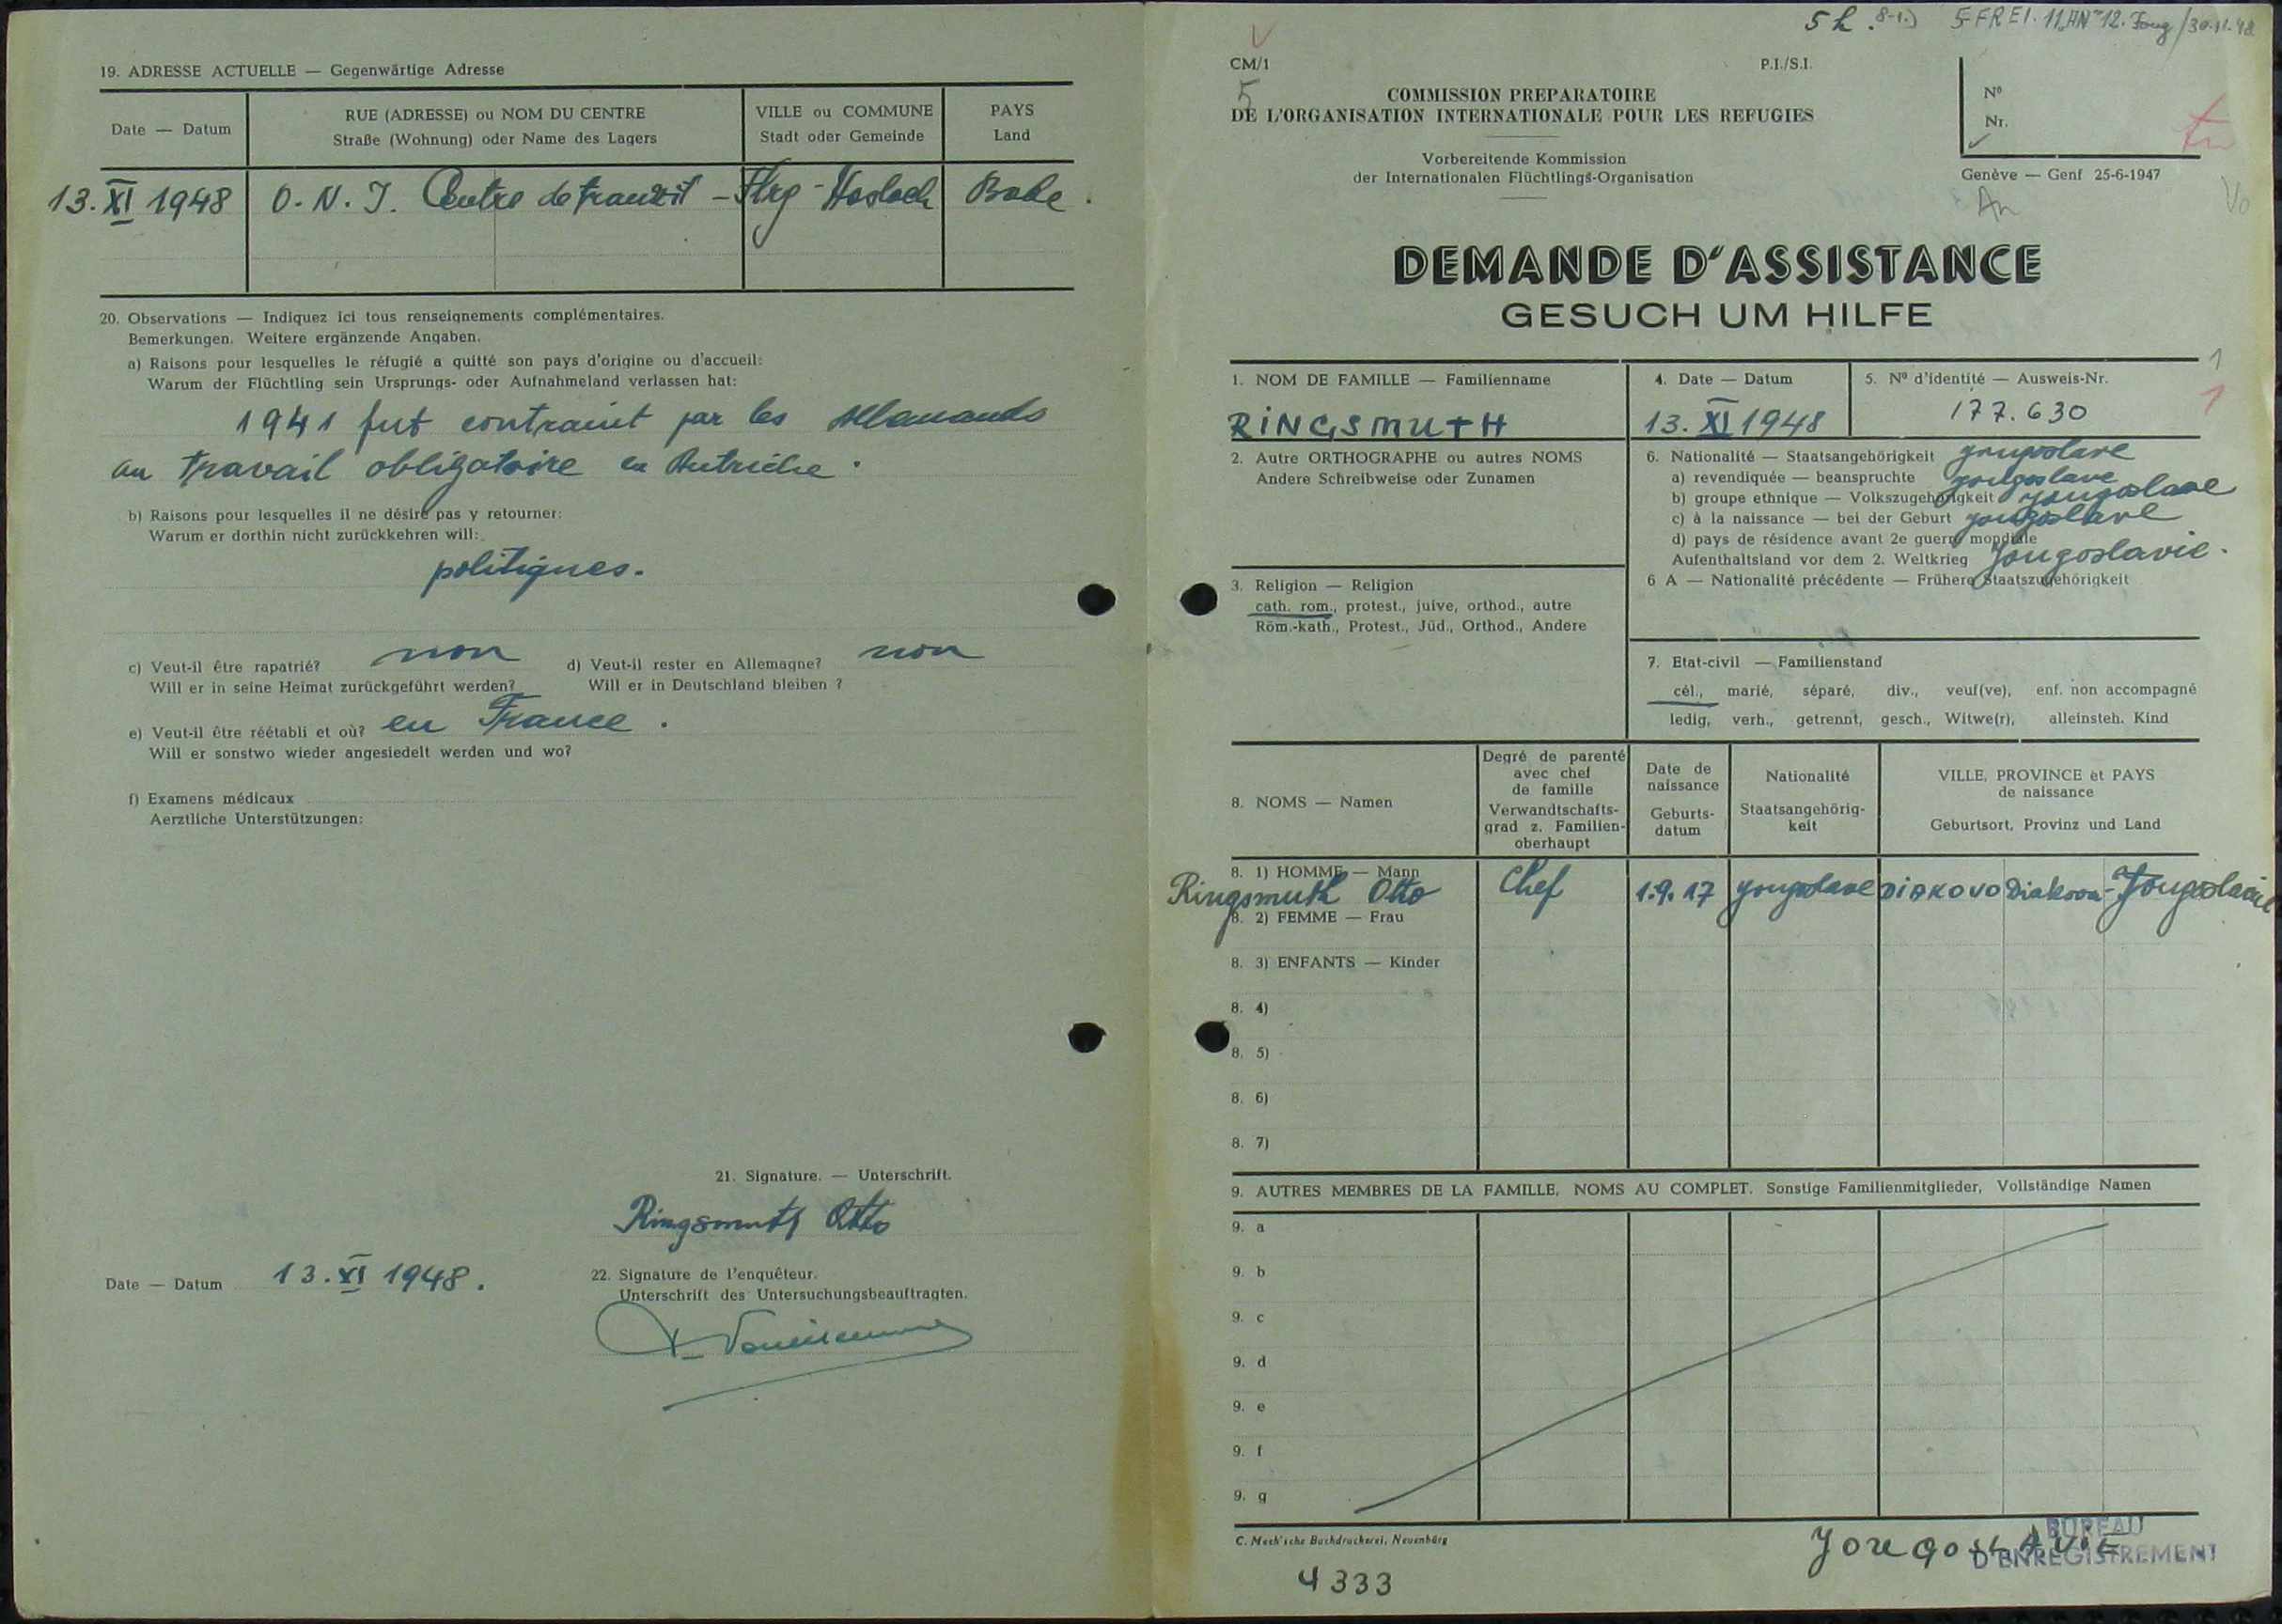 19. ADRESSE ACTUELLE — Gegenwärtige Adresse
Date — Datum
RUE (ADRESSE) ou NOM DU CENTRE
Straße (Wohnung) oder Name des Lagers
VILLE ou COMMUNE
Stadt oder Gemeinde
PAYS
Land
13. XI 1948 O. N. I. Centre de transit – Fbrg - Haslach Bade.
20. Observations — Indiquez ici tous renseignements complémentaires.
Bemerkungen. Weitere ergänzende Angaben.
a) Raisons pour lesquelles le réfugié a quitté son pays d'origine ou d'accueil:
Warum der Flüchtling sein Ursprungs- oder Aufnahmeland verlassen hat:
1941 fut contraint par les Allemands
au travail obligatoire en Autriche.
b) Raisons pour lesquelles il ne désire pas y retourner:
Warum er dorthin nicht zurückkehren will:
politiques.
c) Veut-il être rapatrié? non d) Veut-il rester en Allemagne? non
Will er in seine Heimat zurückgeführt werden? Will er in Deutschland bleiben ?
e) Veut-il être réétabli et où? en France.
Will er sonstwo wieder angesiedelt werden und wo?
f) Examens médicaux
Aerztliche Unterstützungen:
21. Signature. — Unterschrift.
Ringsmuth Otto
Date — Datum 13. XI 1948.
22. Signature de l'enquêteur.
Unterschrift des Untersuchungsbeauftragten.
5 FREI. 11. AN 12. Foug /30.11.48
CM/1 P.I./S.I.
5
COMMISSION PREPARATOIRE
DE L'ORGANISATION INTERNATIONALE POUR LES REFUGIES
Vorbereitende Kommission
der Internationalen Flüchtlings-Organisation
Nº
Nr.
Genève — Genf 25-6-1947
An
DEMANDE D'ASSISTANCE
GESUCH UM HILFE
1. NOM DE FAMILLE — Familienname
RINGSMUTH
4. Date — Datum
13. XI 1948
5. Nº d'identité — Ausweis-Nr.
177.630
1
1
2. Autre ORTHOGRAPHE ou autres NOMS
Andere Schreibweise oder Zunamen
3. Religion — Religion
cath. rom., protest., juive, orthod., autre
Röm.-kath., Protest., Jüd., Orthod., Andere
6. Nationalité — Staatsangehörigkeit yougoslave
a) revendiquée — beanspruchte yougoslave
b) groupe ethnique — Volkszugehörigkeit yougoslave
c) à la naissance — bei der Geburt yougoslave
d) pays de résidence avant 2e guerre mondiale
Aufenthaltsland vor dem 2. Weltkrieg Yougoslavie.
6 A — Nationalité précédente — Frühere Staatszugehörigkeit
7. Etat-civil — Familienstand
cél., marié, séparé, div., veuf(ve), enf. non accompagné
ledig, verh., getrennt, gesch., Witwe(r), alleinsteh. Kind
8. NOMS — Namen
Degré de parenté
avec chef
de famille
Verwandtschafts-
grad z. Familien-
oberhaupt
Date de
naissance
Geburts-
datum
Nationalité
Staatsangehörig-
keit
VILLE, PROVINCE et PAYS
de naissance
Geburtsort, Provinz und Land
8. 1) HOMME — Mann
Ringsmuth Otto Chef 1.9.17 yougoslave DIAKOVO Yougoslavie
8. 2) FEMME — Frau
8. 3) ENFANTS — Kinder
8. 4)
8. 5)
8. 6)
8. 7)
9. AUTRES MEMBRES DE LA FAMILLE, NOMS AU COMPLET. Sonstige Familienmitglieder, Vollständige Namen
9. a
9. b
9. c
9. d
9. e
9. f
9. g
C. Meeh'sche Buchdruckerei, Neuenbürg
YougoslAViE
BUREAU
D'ENREGISTREMENT
4333